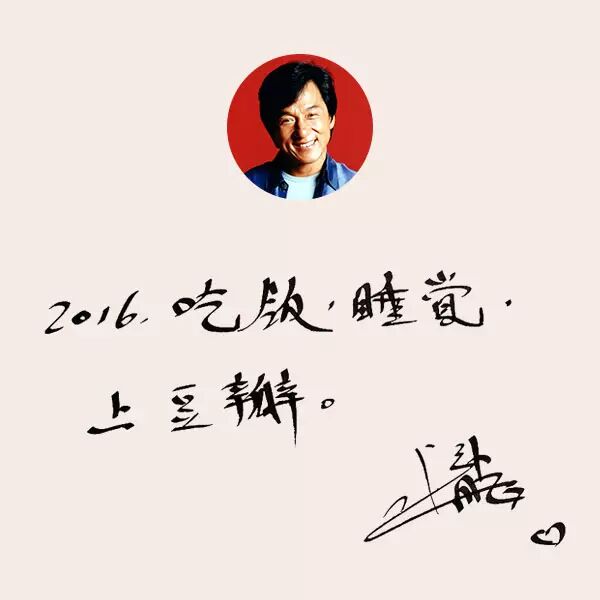 2016,吃饭,睡觉,
上豆瓣。
成龍